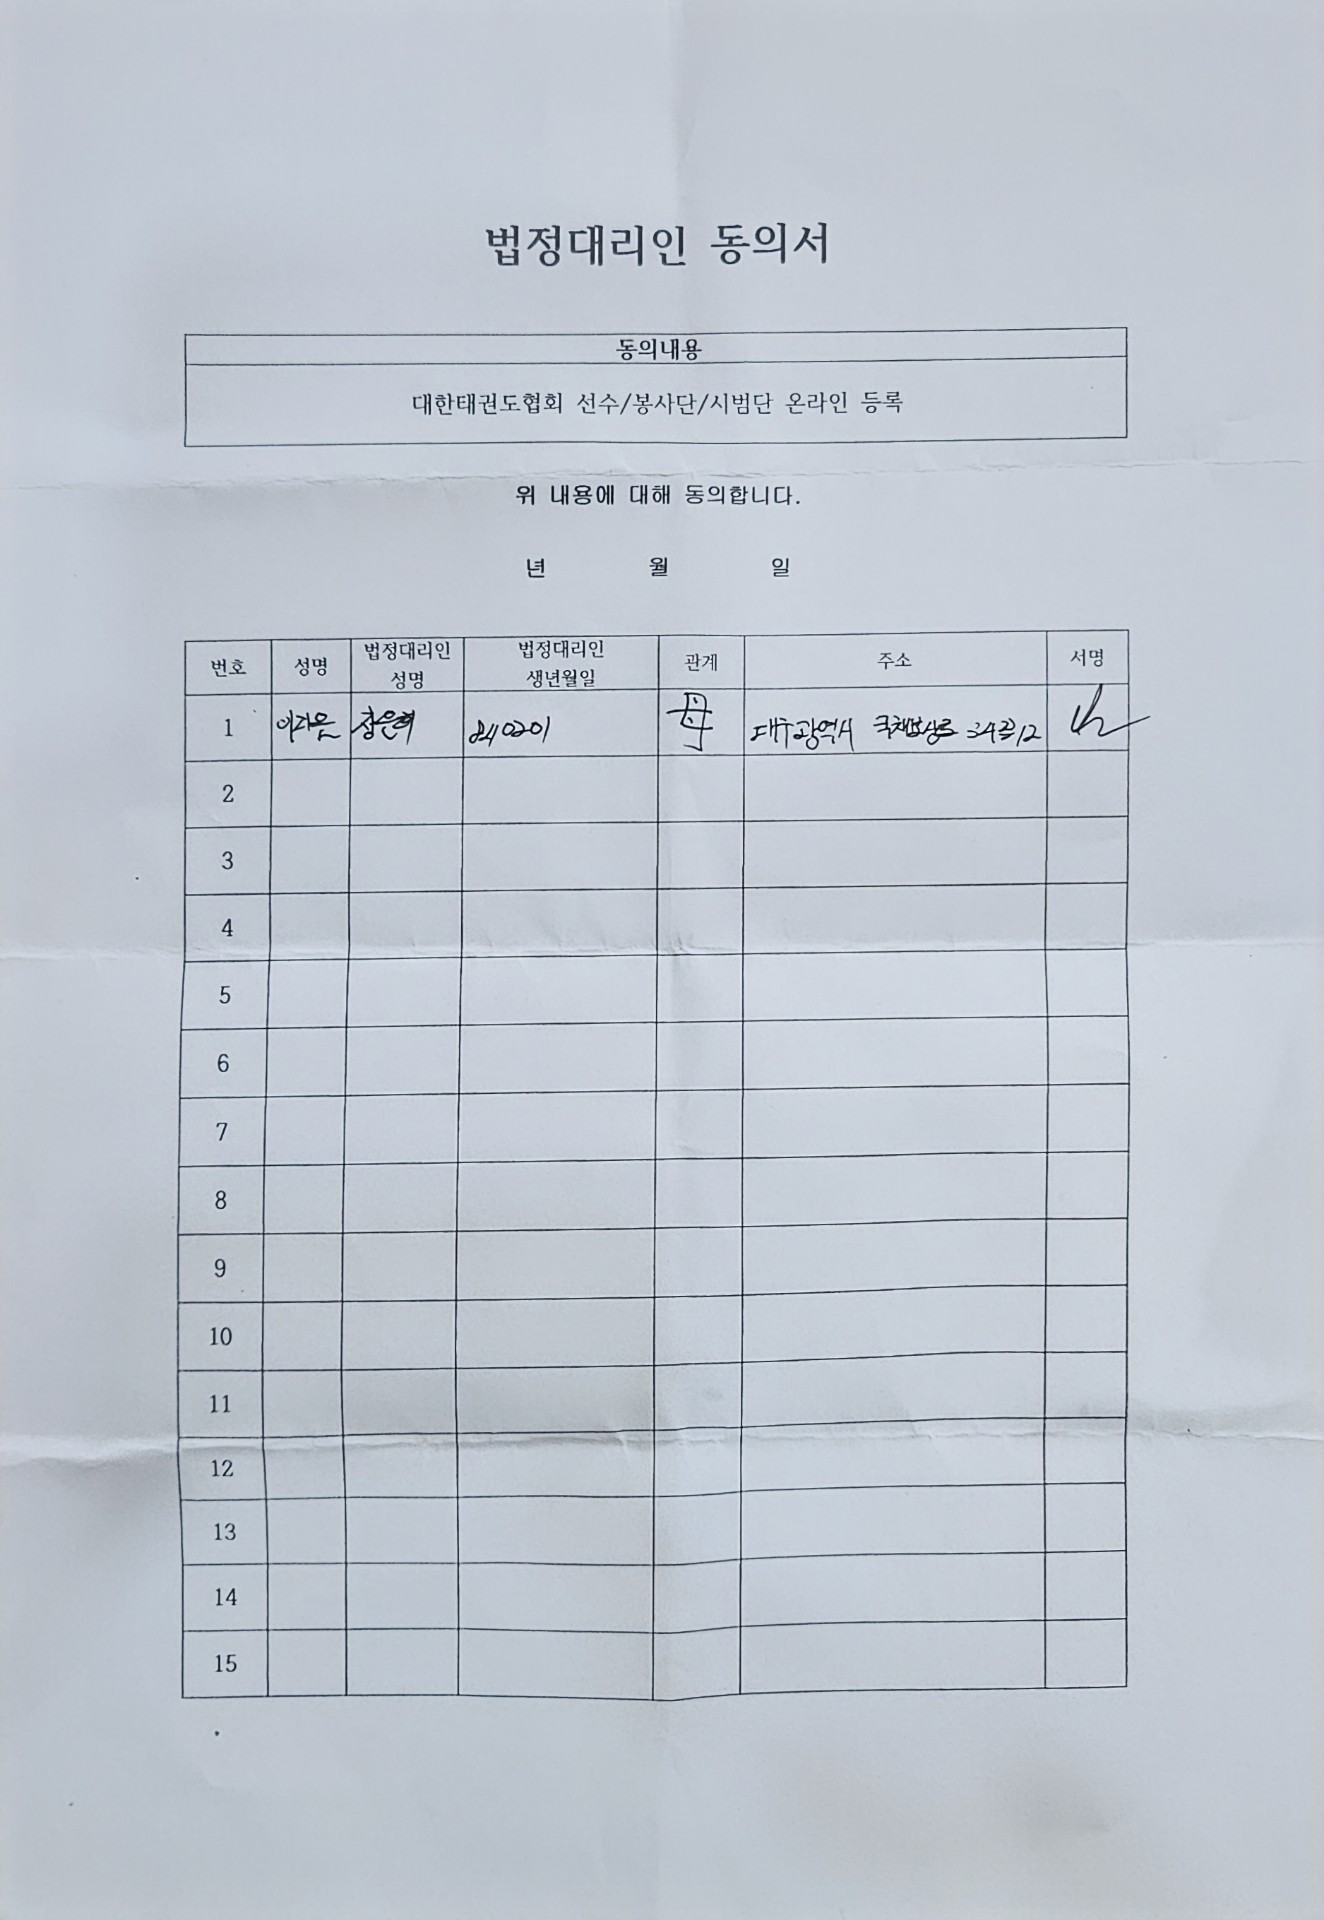 법정대리인 동의서
동의내용
대한태권도협회 선수/봉사단/시범단 온라인 등록
위 내용에 대해 동의합니다.
년 월 일
번호 성명 법정대리인 성명 법정대리인 생년월일 관계 주소 서명
1 이자은 장은희 840201 母 대구광역시 국채보상로 34길 12
2
3
4
5
6
7
8
9
10
11
12
13
14
15